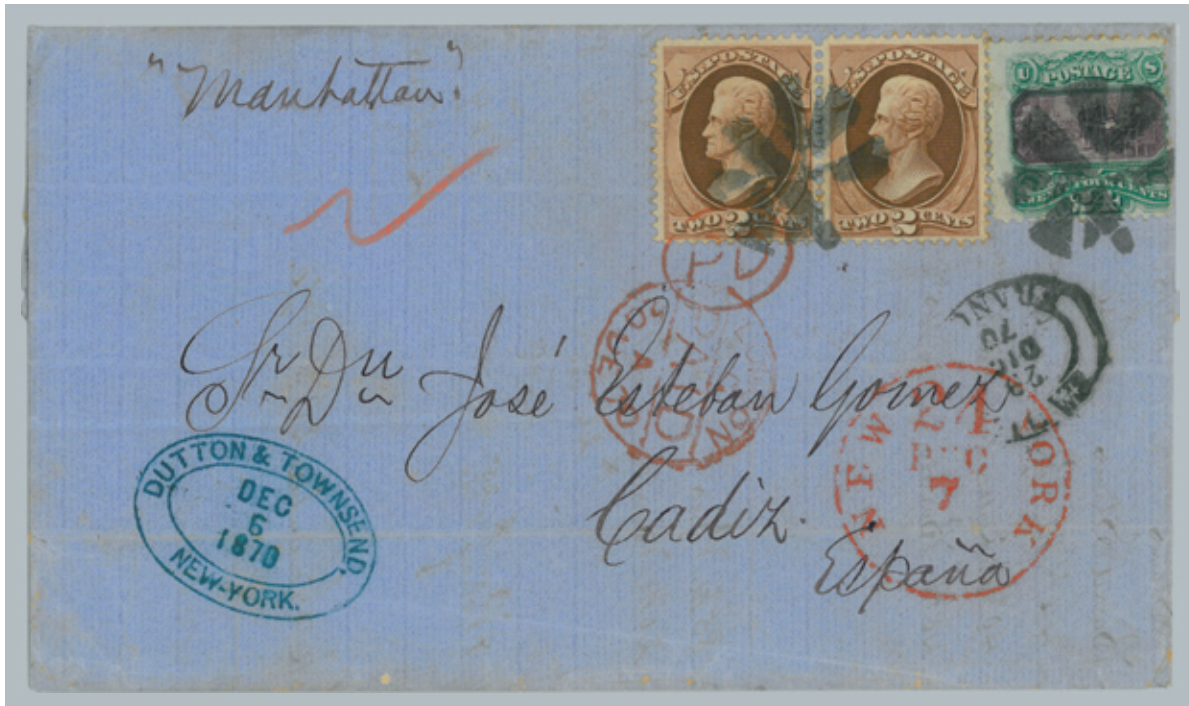 "Manhattan".
U.S. POSTAGE
TWO 2 CENTS
U.S. POSTAGE
TWO 2 CENTS
U POSTAGE S
TWENTY FOUR CENTS
PD
Sr Dn José Esteban Gomez
Cadiz.
España
DUTTON & TOWNSEND,
DEC
6
1870
NEW-YORK.
LONDON
PAID
NEW YORK
24
DEC
7
DIC
70